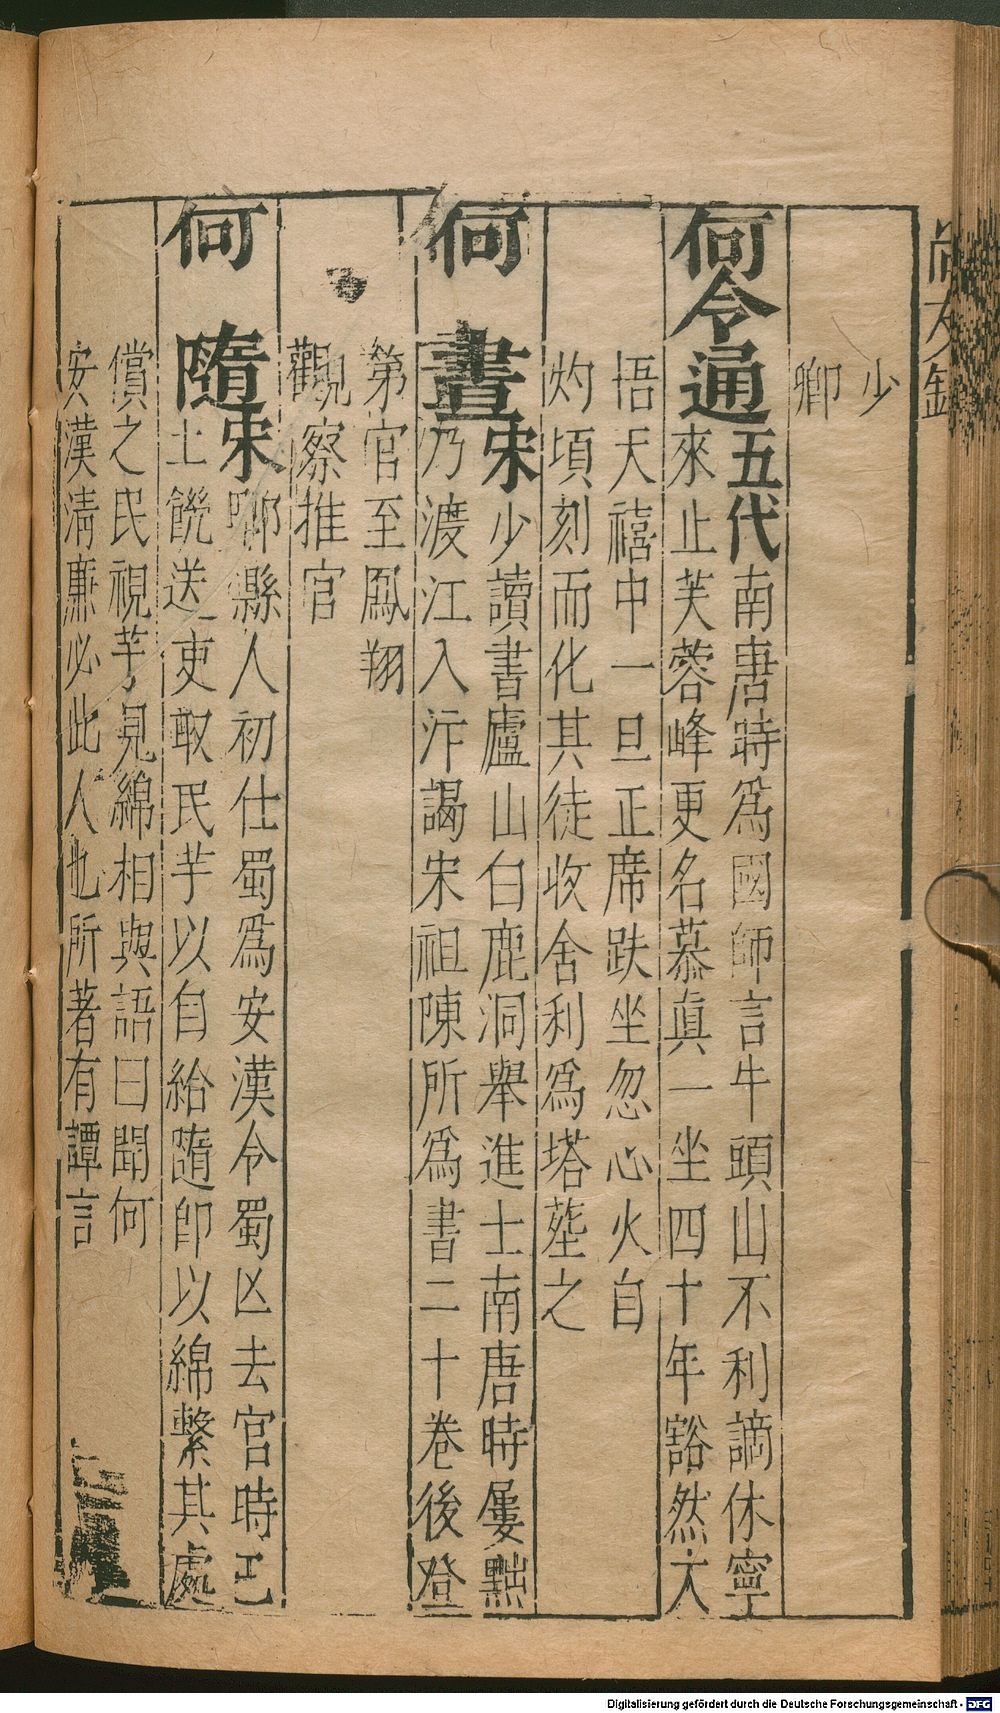 尚友錄
少
卿
何令通五代南唐時爲國師言牛頭山不利謫休寧
來止芙蓉峰更名慕眞一坐四十年豁然大
悟天禧中一旦正席趺坐忽心火自
灼頃刻而化其徒收舍利爲塔塟之
何晝宋少讀書廬山白鹿洞舉進士南唐時屢黜
乃渡江入汴謁宋祖陳所爲書二十卷後登
第官至鳳翔
觀察推官
何隨宋郪縣人初仕蜀爲安漢令蜀亾去官時巳
土饒送吏取民芋以自給隨卽以綿繫其處
償之民視芋見綿相與語曰聞何
安漢淸廉必此人也所著有譚言
Digitalisierung gefördert durch die Deutsche Forschungsgemeinschaft - DFG